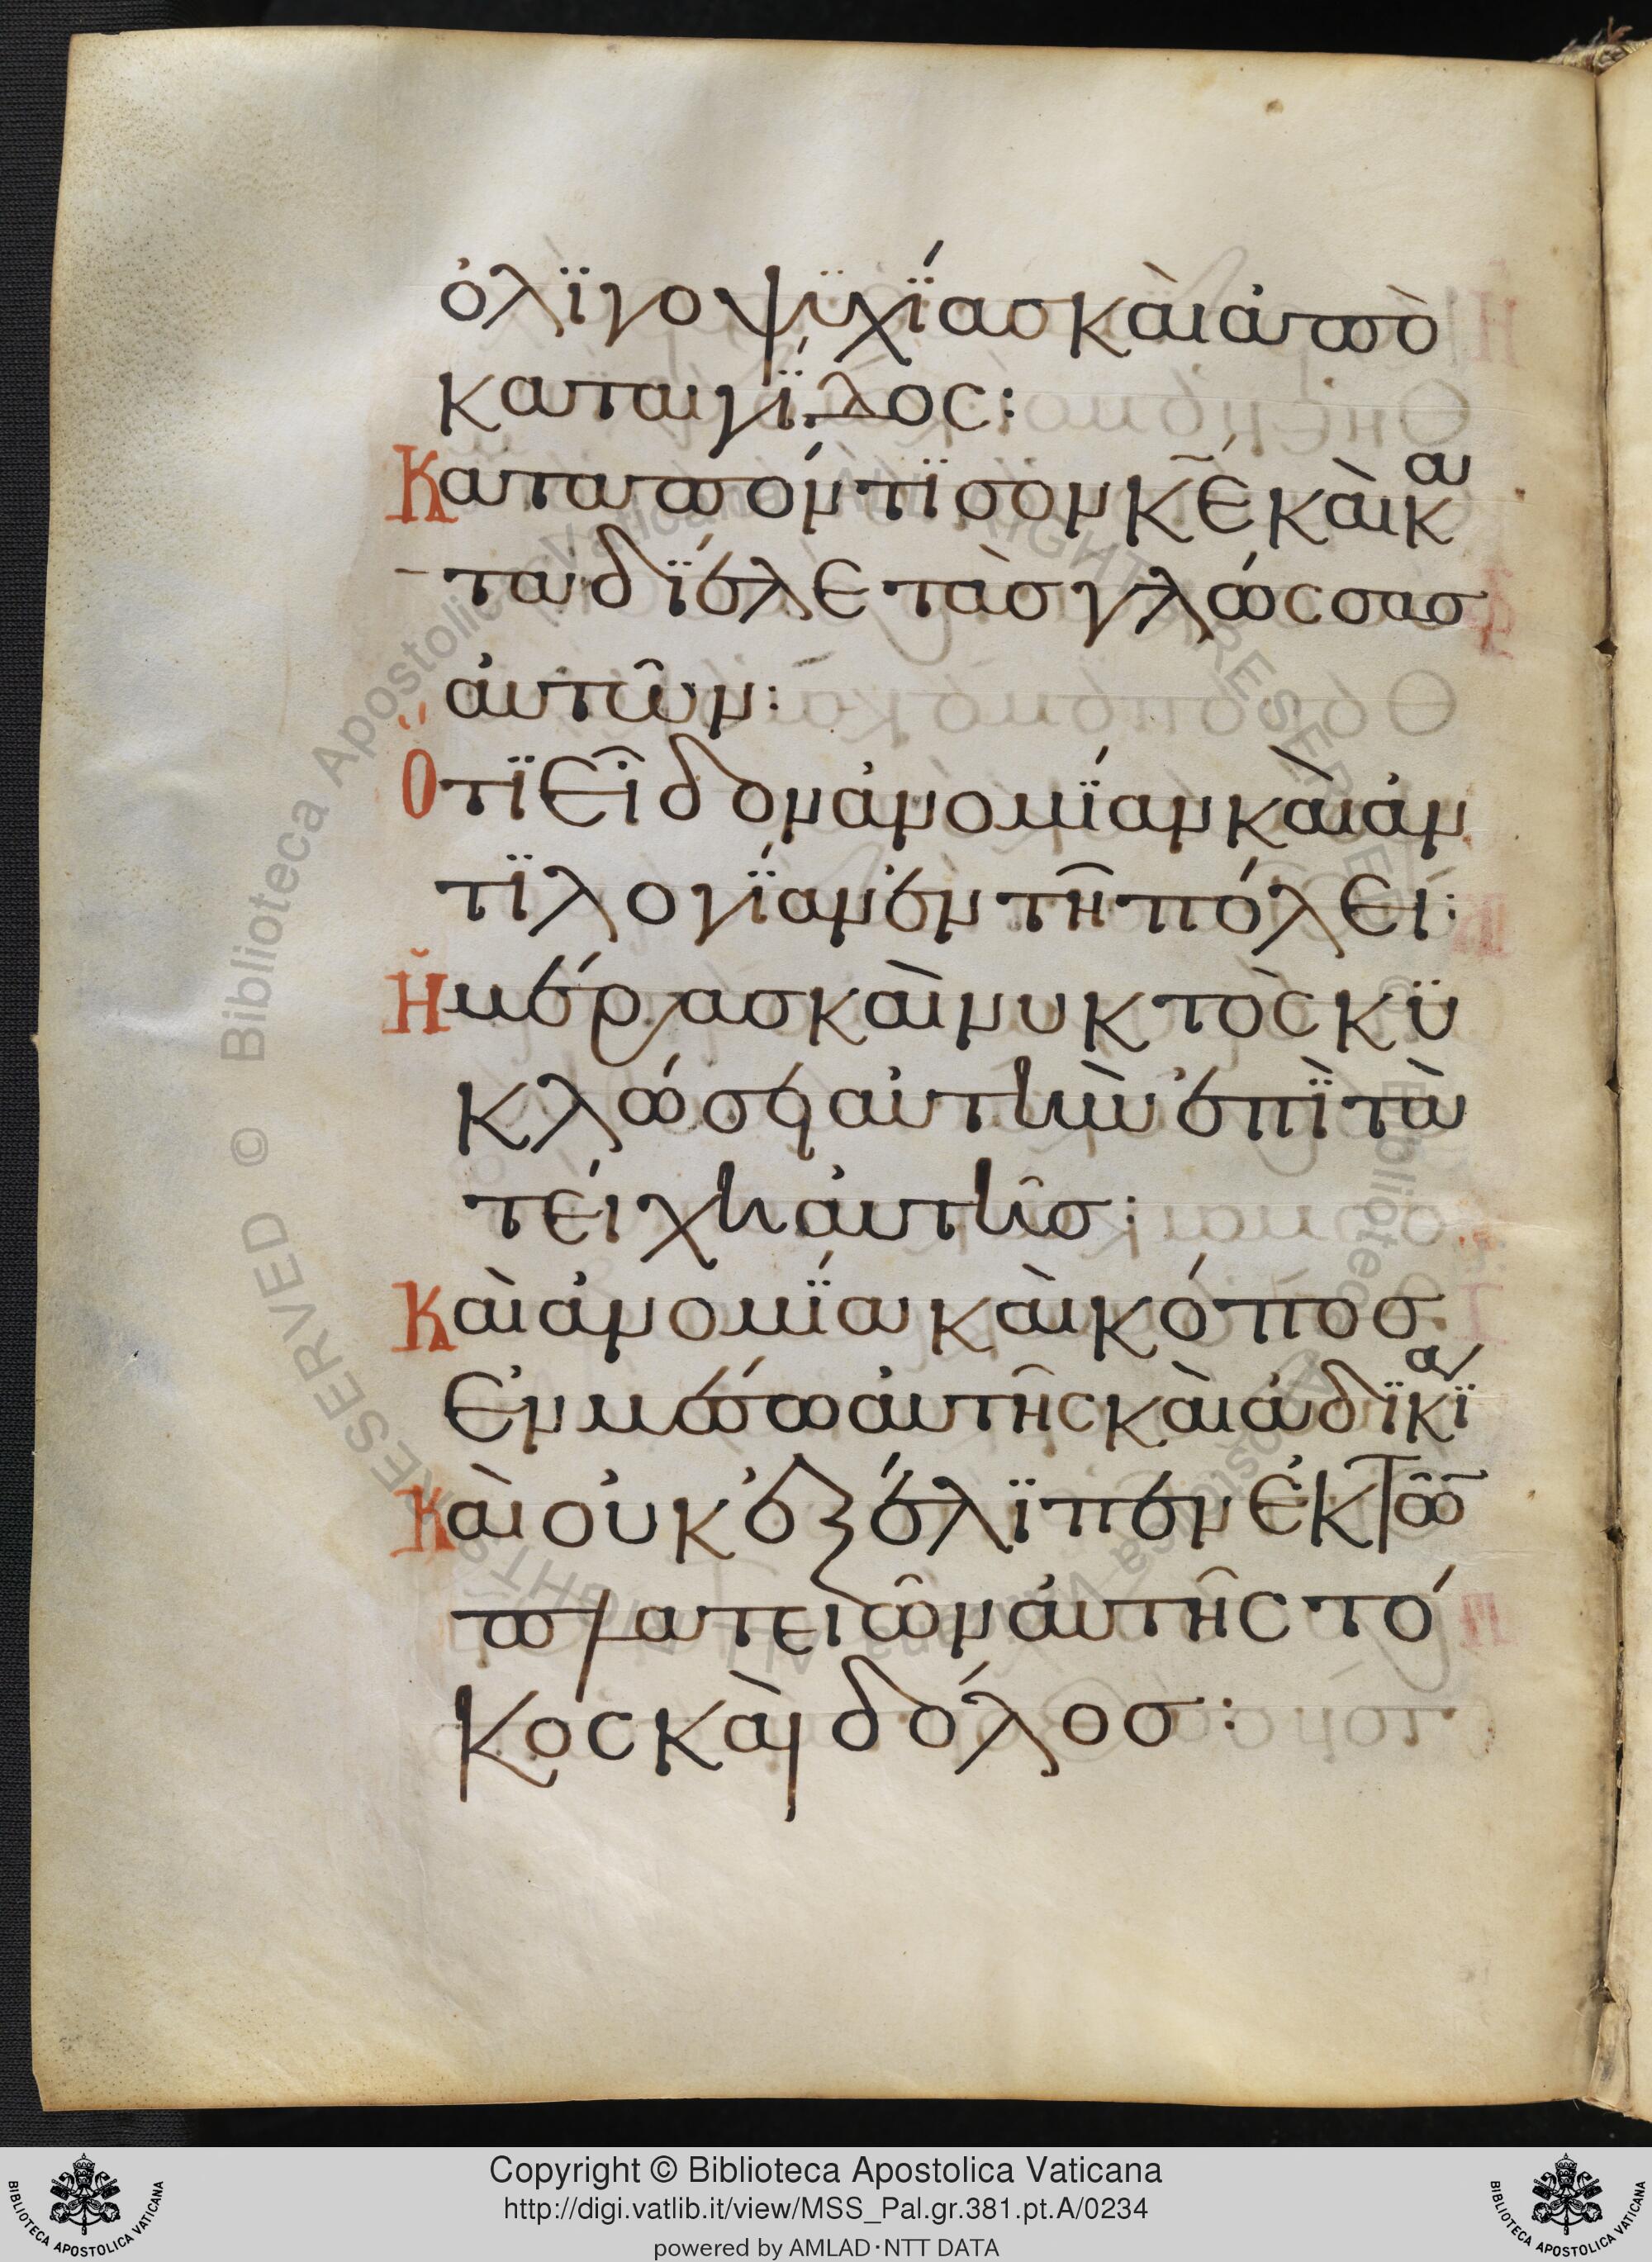 ὀλϊγοψϋχΐασκὰιἀπὸ
καταιγΐδος:
Καταπόντϊσονκ̅ε̅κὰικα
ταδΐελετὰσγλώςσασ
ἀυτῶν:
Ὅτϊεῖδονἀνομΐανκὰιἀν
τϊλογΐανἐντῆπόλει:
Ἡμέρασκὰινυκτὸςκϋ
κλώσειἀυτὴνἐπϊτὰ
τείχηἀυτῆσ:
Κὰιἀνομΐακὰικόποσ
Ἐνμέσωἀυτῆςκὰιἀδϊκϊα
Κὰιοὐκἐξέλϊπενἐκτῶ
πλατειῶνἀυτῆςτό
κοςκὰιδόλοσ:
© Biblioteca Apostolica Vaticana ALL RIGHTS RESERVED
Copyright © Biblioteca Apostolica Vaticana
http://digi.vatlib.it/view/MSS_Pal.gr.381.pt.A/0234
powered by AMLAD·NTT DATA
BIBLIOTECA APOSTOLICA VATICANA
BIBLIOTECA APOSTOLICA VATICANA